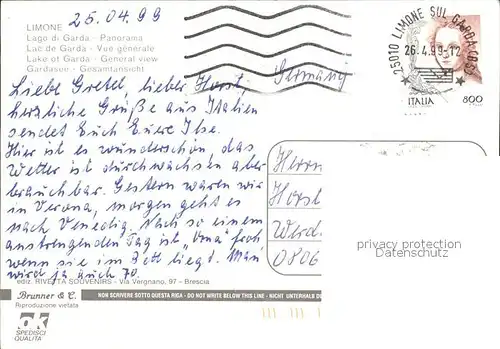 25.04.99
LIMONE
Lago di Garda - Panorama
Lac de Garda - Vue générale
Lake of Garda - General view
Gardasee - Gesamtansicht
Germany
25010 LIMONE SUL GARDA (BS)
26.4.99-12
ITALIA 800
Liebe Gretel, lieber Horst,
herzliche Grüße aus Italien
sendet Euch Eure Ilse.
Hier ist es wunderschön das
Wetter ist durchwachsen aber
brauchbar. Gestern waren wir
in Verona, morgen geht es
nach Venedig. Nach so einem
anstrengenden Tag ist „Oma" froh,
wenn sie im Bett liegt. Man
wird ja auch 70.
Herrn
Horst
Werd
0806
privacy protection
Datenschutz
ediz. RIVETTA SOUVENIRS - Via Vergnano, 97 - Brescia
Brunner & C.
NON SCRIVERE SOTTO QUESTA RIGA - DO NOT WRITE BELOW THIS LINE - NICHT UNTERHALB D
Riproduzione vietata
OK
SPEDISCI
QUALITÀ